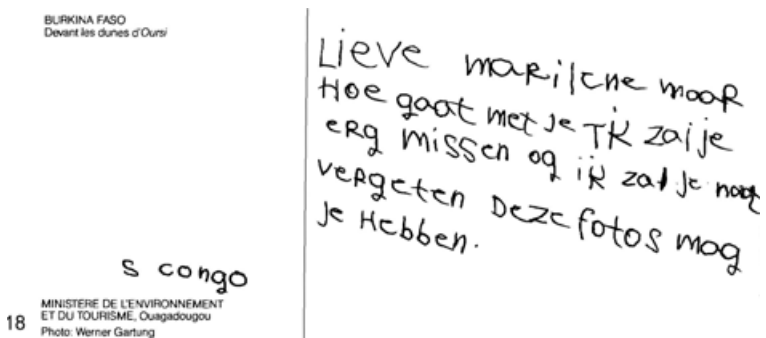 BURKINA FASO
Devant les dunes d'Oursi
S congo
MINISTERE DE L'ENVIRONNEMENT
ET DU TOURISME, Ouagadougou
Photo: Werner Gartung
18
Lieve maRilene mooR
Hoe gaat met je Tik zal je
eRg missen og ik zal je nooit
veRgeten Deze fotos mog
je Hebben.